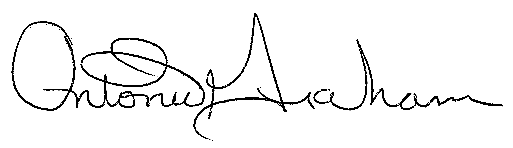 Antonio Graham